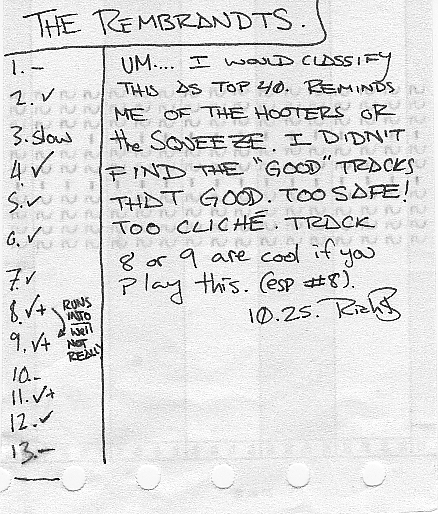 THE REMBRANDTS.
1. –
2. ✓
3. slow
4. ✓
5. ✓
6. ✓
7. ✓
8. ✓+ RUNS
INTO
9. ✓+ well
NOT
REALLY
10. –
11. ✓+
12. ✓
13. –
UM.... I WOULD CLASSIFY
THIS AS TOP 40. REMINDS
ME OF THE HOOTERS OR
the SQUEEZE. I DIDN'T
FIND THE "GOOD" TRACKS
THAT GOOD. TOO SAFE!
TOO CLICHÉ. TRACK
8 or 9 are cool if you
play this. (esp #8).
10.25. Rich